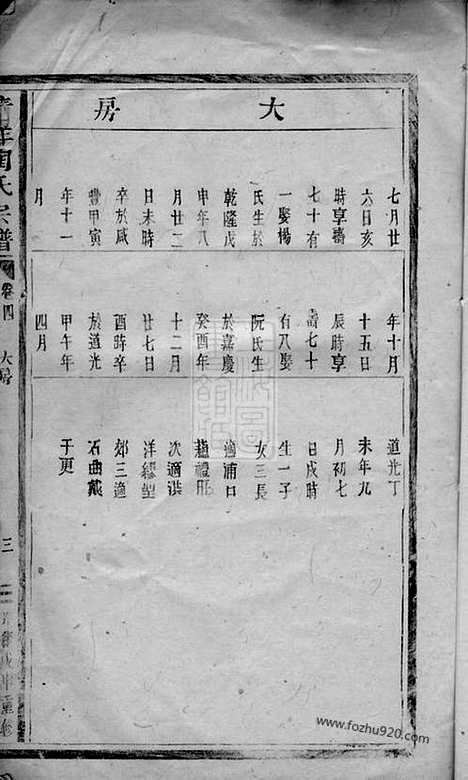 大房
七月廿
六日亥
時享壽
七十有
一娶楊
氏生於
乾隆戊
申年八
月廿二
日未時
卒於咸
豐甲寅
年十一
月
年十月
十五日
辰時享
壽七十
有八娶
阮氏生
於嘉慶
癸酉年
十二月
廿七日
酉時卒
於道光
甲午年
四月
道光丁
未年九
月初七
日戌時
生一子
女三長
適浦口
趙禮邢
次適洪
洋繆型
郊三適
石曲戴
于更
陶氏宗譜
卷四
大房
三
www.fozhu920.com